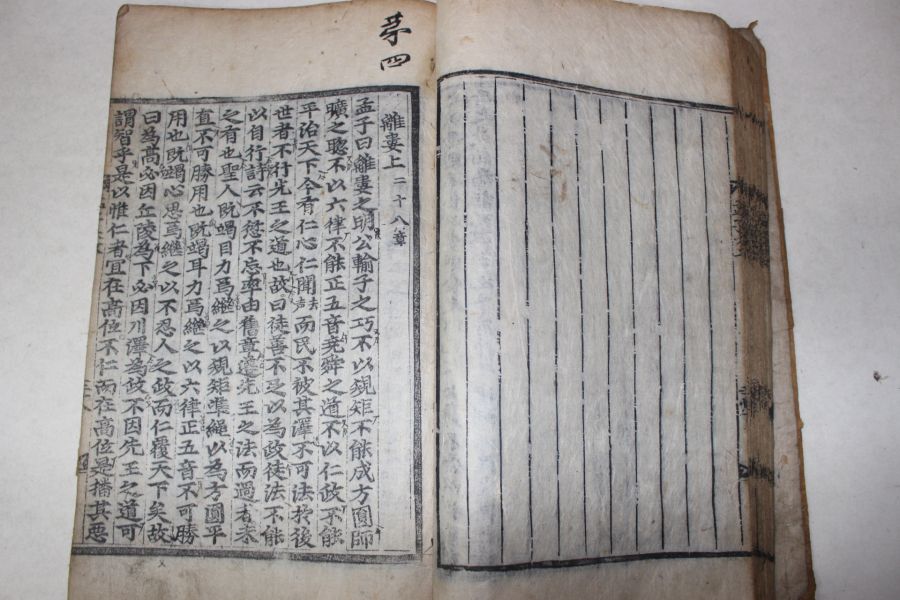 苐四
離婁上 二十八章
孟子曰離婁之明公輸子之巧不以規矩不能成方圓師
曠之聦不以六律不能正五音堯舜之道不以仁政不能
平治天下今有仁心仁聞去声而民不被其澤不可法於後
世者不行先王之道也故曰徒善不足以為政徒法不能
以自行詩云不愆不忘率由舊章遵先王之法而過者未
之有也聖人旣竭目力焉繼之以規矩準繩以為方圓平
直不可勝用也旣竭耳力焉繼之以六律正五音不可勝
用也旣竭心思焉繼之以不忍人之政而仁覆天下矣故
曰為高必因丘陵為下必因川澤為政不因先王之道可
謂智乎是以惟仁者宜在高位不仁而在高位是播其惡